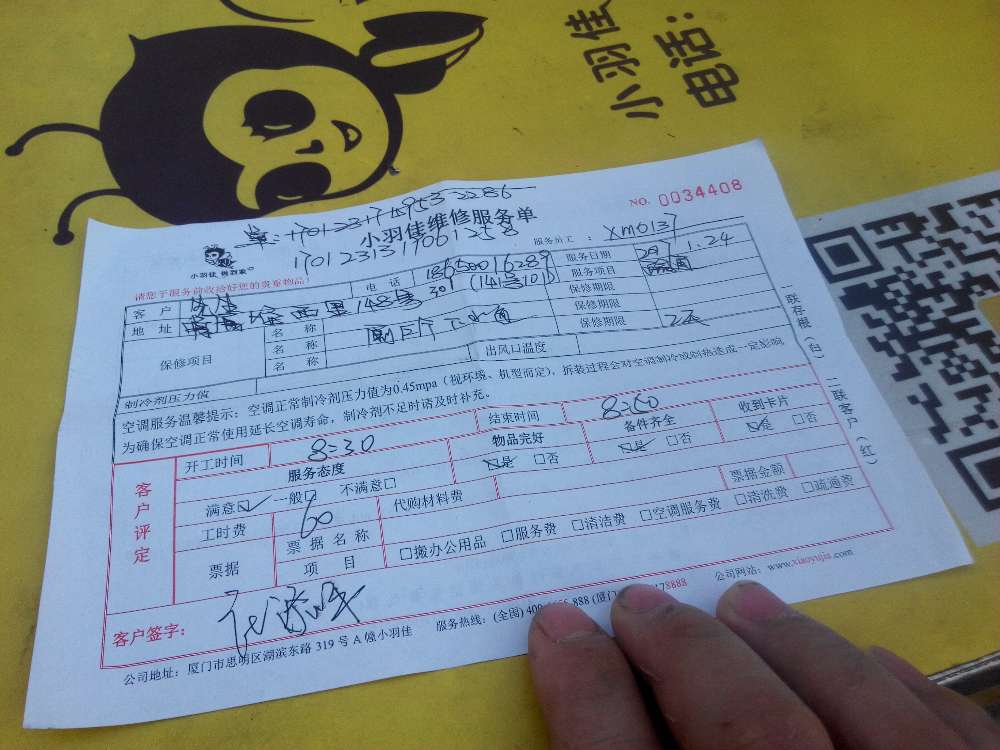 小羽佳
电话:
NO. 0034408
小羽佳维修服务单
服务员工: XM0137
请您于服务前收拾好您的贵重物品!
客户 电话 18650016289 服务日期 1.24
地址 西里148号301 (141号101) 服务项目
保修项目 名称 保修期限
名称 保修期限
名称 保修期限
制冷剂压力值 出风口温度
空调服务温馨提示: 空调正常制冷剂压力值为0.45mpa (视环境、机型而定), 拆装过程会对空调制冷或制热造成一定影响
为确保空调正常使用延长空调寿命, 制冷剂不足时请及时补充。
一联存根(白) 二联客户(红)
客户评定
开工时间 8:30 结束时间
服务态度 物品完好 备件齐全 收到卡片
满意☑ 一般□ 不满意□ ☑是 □否 ☑是 □否 ☑是 □否
工时费 60 代购材料费 票据金额
票据 票据名称
项目 □搬办公用品 □服务费 □清洁费 □空调服务费 □清洗费 □疏通费
客户签字:
公司地址: 厦门市思明区湖滨东路 319 号 A 幢小羽佳 服务热线: (全国) 400 888 (厦门) 8888 公司网站: www.xiaoyujia.com